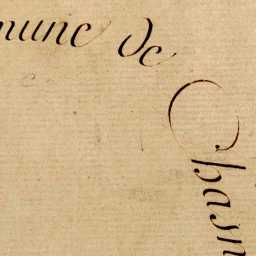 mune de
Chasn